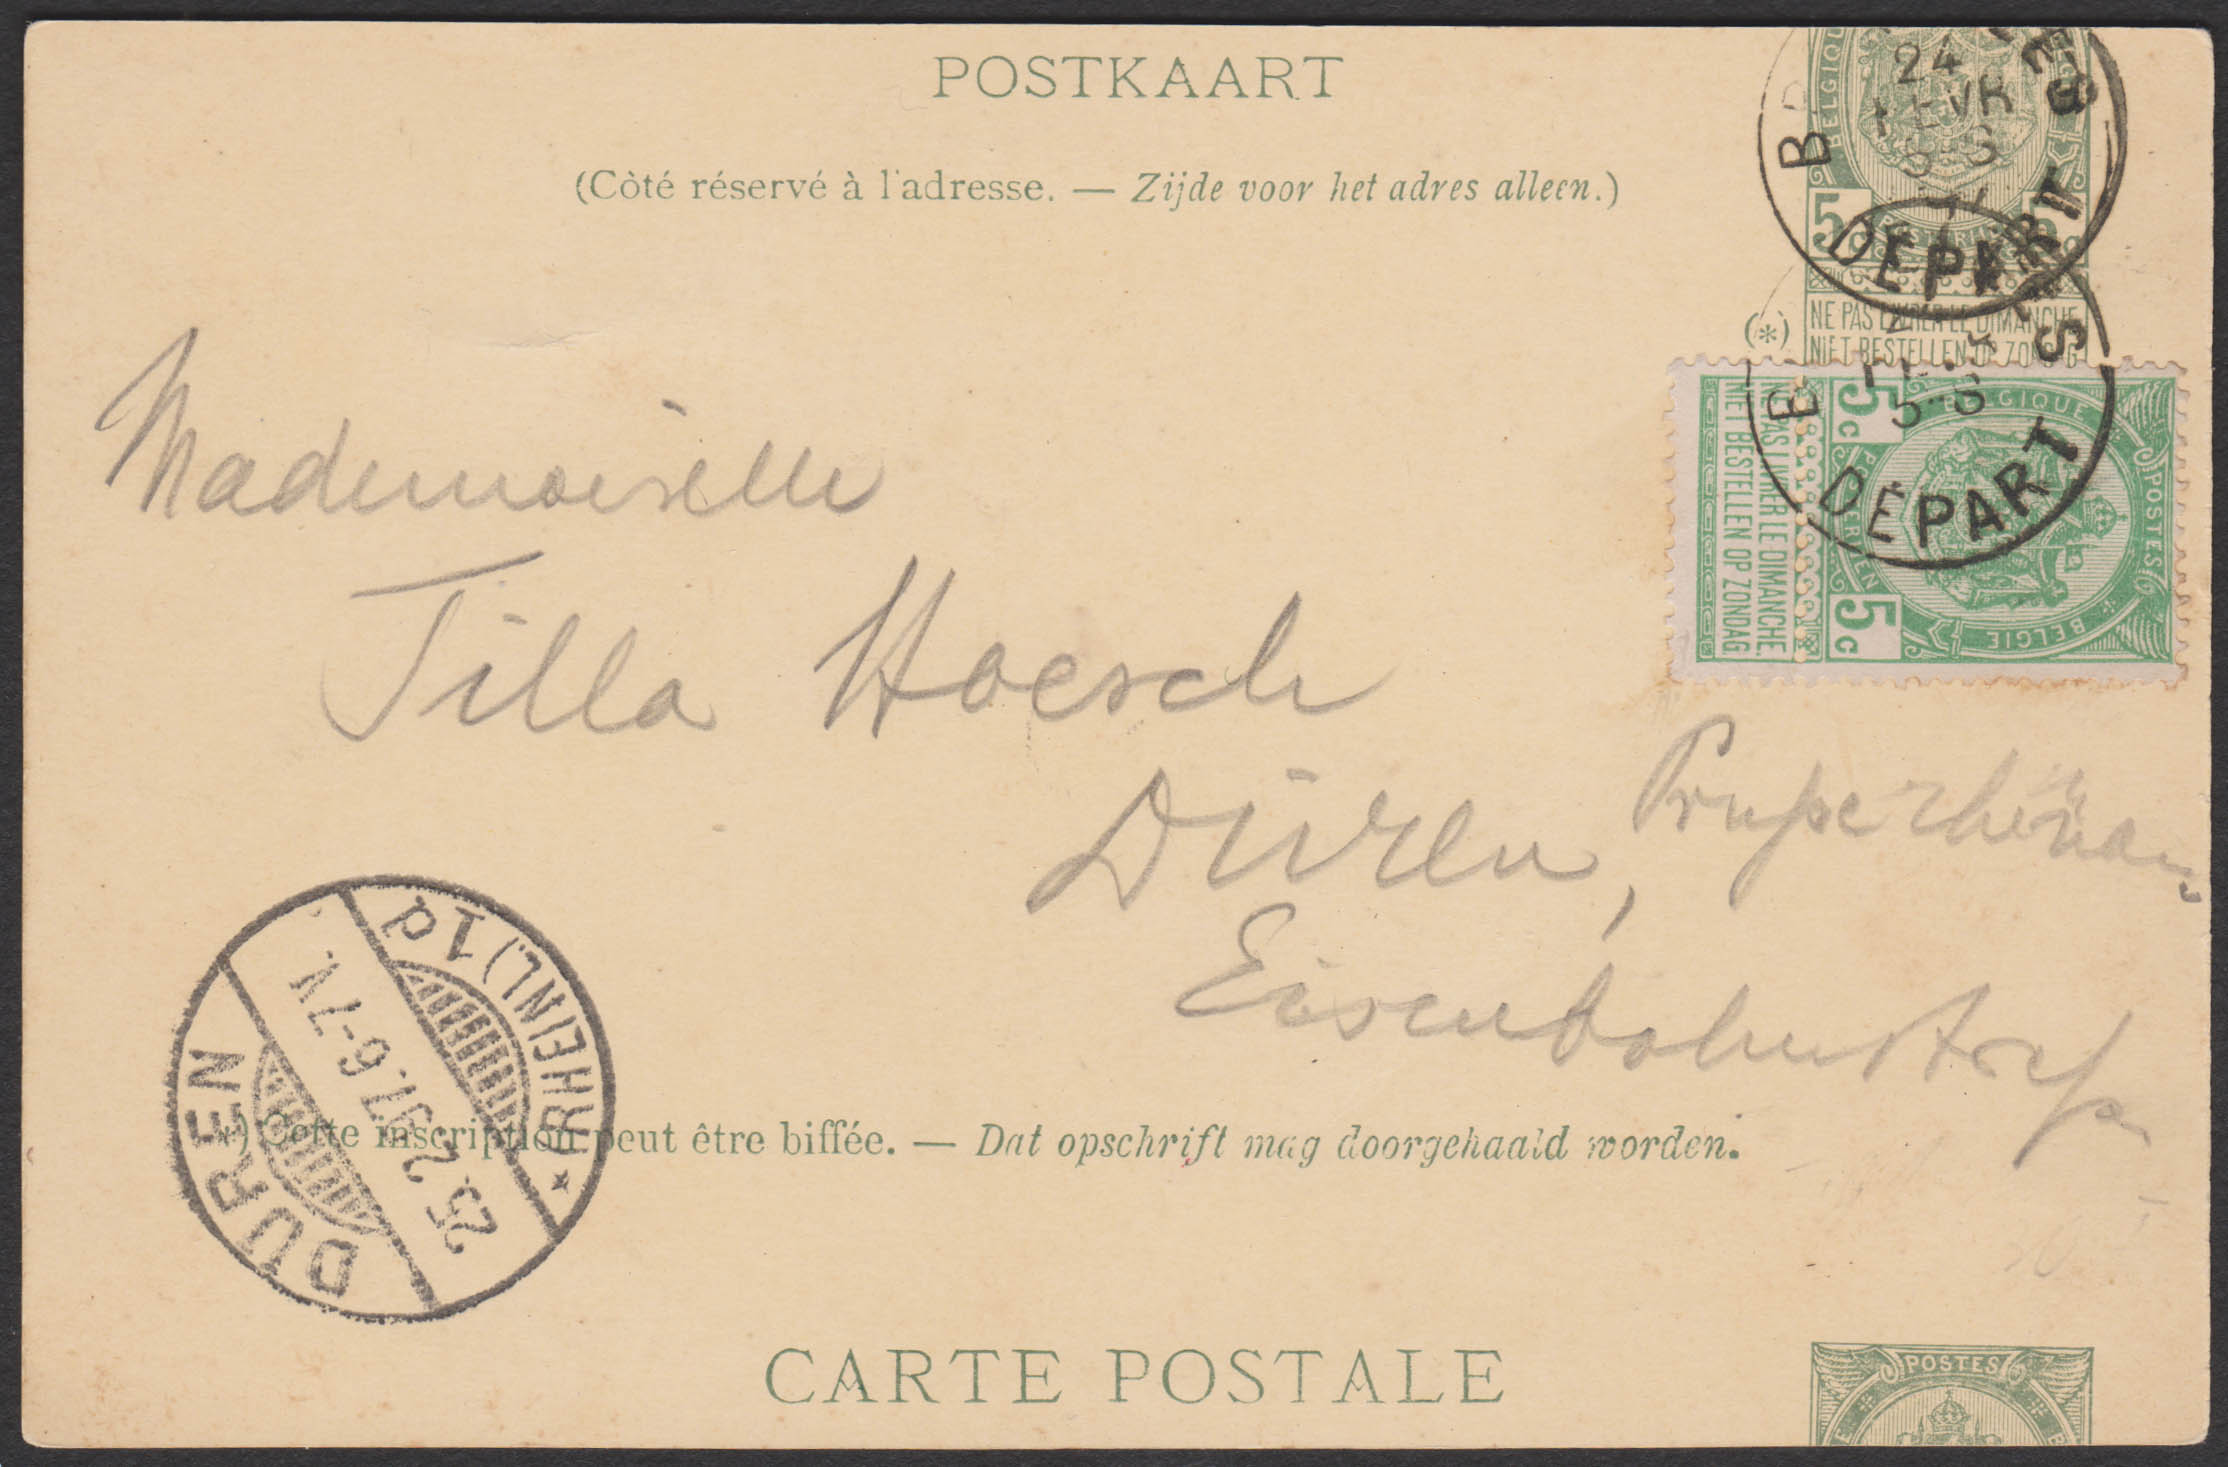 POSTKAART
(Côté réservé à l'adresse. — Zijde voor het adres alleen.)
24
5 c
DEPART
(*)
NE PAS LIVRER LE DIMANCHE
NIET BESTELLEN OP ZONDAG
BELGIQUE
POSTES
BELGIE
POSTERIJEN
5 c
5 c
NE PAS LIVRER LE DIMANCHE.
NIET BESTELLEN OP ZONDAG
DEPART
Mademoiselle
Tilla Hoesch
Düren,
Eisenbahnstrasse
DÜREN
(RHEINL.) 1d
25.2.97. 6-7V.
*) Cette inscription peut être biffée. — Dat opschrift mag doorgehaald worden.
CARTE POSTALE
POSTES